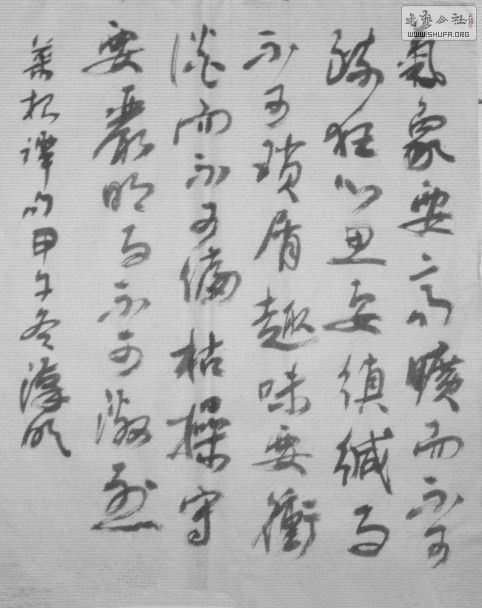 氣象要高曠而不可
疎狂心思要縝緘而
不可瑣屑趣味要衝
淡而不可偏枯操守
要嚴明而不可激烈
菜根譚句甲午冬
书艺公社
WWW.SHUFA.ORG